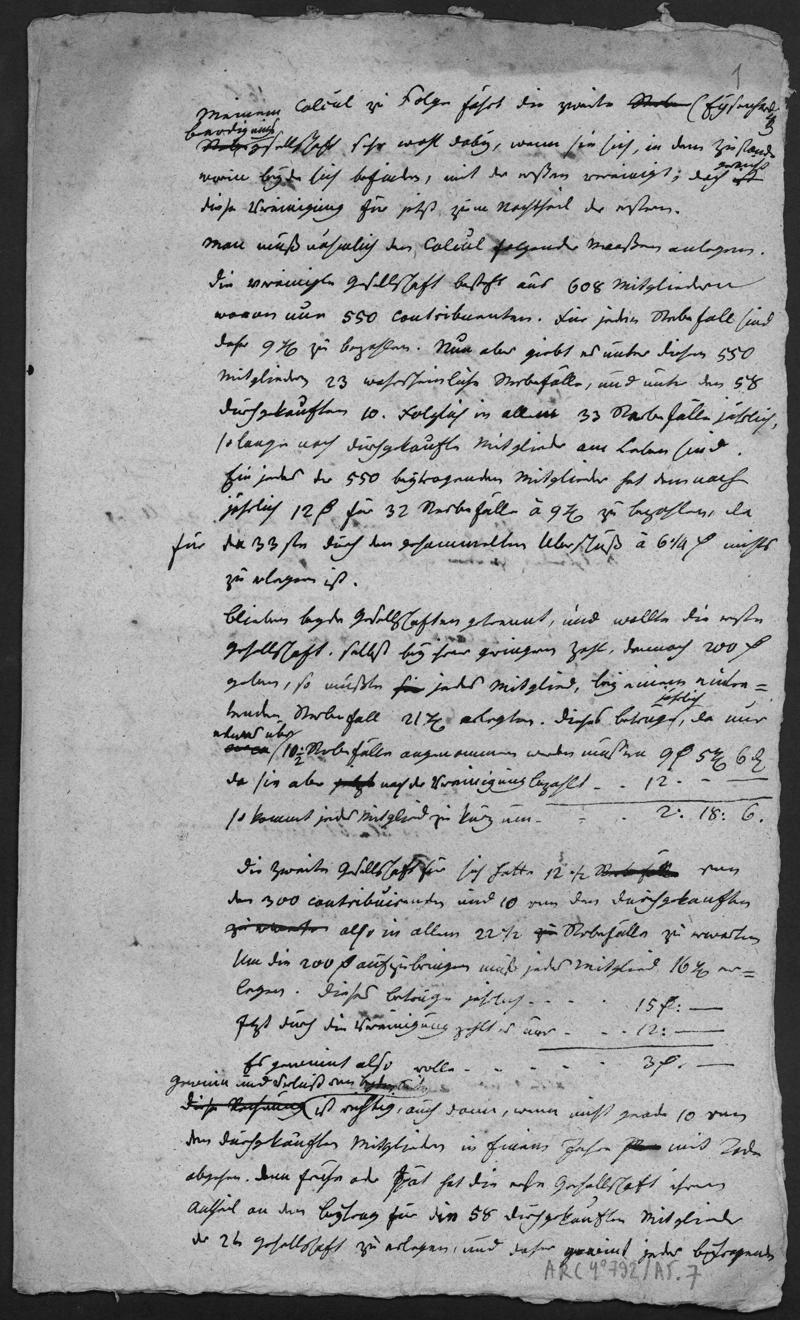 1
Meinem Calcul zu Folge fährt die zweite Sterbe (Eÿsenhardt
beerdigungs
Sterbegesellschaft sehr wohl dabey, wenn sie sich, in dem Zustande
gereicht
worin beyde sich befinden, mit der ersten vereinigt; doch ist
diese Vereinigung für jetzt zum Nachtheil der ersten.
Man muß nähmlich den Calcul folgender Maaßen anlegen.
Die vereinigte Gesellschaft besteht aus 608 Mitgliedern
wovon nur 550 contribuenten. Für jeden Sterbefall sind
daher 9 zu bezahlen. Nun aber giebt es unter diesen 550
Mitgliedern 23 wahrscheinliche Sterbefälle, und unter den 58
durchgekauften 10. Folglich in allem 33 Sterbefälle jährlich,
so lange noch durchgekaufte Mitglieder am Leben sind.
Ein jedes der 550 beytragenden Mitglieder hat demnach
jährlich 12 für 32 Sterbefälle à 9 zu bezahlen, da
für den 33sten durch den gesammelten Überschuß à 6 1/4 nichts
zu erlegen ist.
Blieben beyde Gesellschaften getrennt, und wollte die erste
Gesellschaft, selbst bey ihrer geringern Zahl, dennoch 200
geben, so müßte sie jedes Mitglied, bey einem eintre=
jährlich
tenden Sterbefall 21 erlegen. Dieses betrüge, da nur
etwas über
10 1/2 Sterbefälle angenommen werden müssen 9 5 6
da sie aber jetzt nach der Vereinigung bezahlt - - 12 - -
so kommt jedes Mitglied zu kurz um - - - 2: 18: 6.
Die zweite Gesellschaft für sich hatte 12 1/2 Sterbefälle von
den 300 contribuirenden und 10 von den durchgekauften
zu erwarten also in allem 22 1/2 zu Sterbefälle zu erwarten
Um die 200 aufzubringen muß jedes Mitglied 16 er=
legen. Dieses betrüge jährlich - - - 15: -
Jetzt durch die Vereinigung zahlt es nur - - 12: -
Es gewinnt also - - - - 3. -
Gewinn und Verlust von
Diese Rechnung ist richtig, auch dann, wenn nicht grade 10 von
den durchgekauften Mitgliedern in Einem Jahre mit Tode
abgehen. Denn frühe oder spät hat die erste Gesellschaft ihren
Antheil an dem Beytrag für die 58 durchgekauften Mitglieder
der 2ten Gesellschaft zu erlegen, und daher gewinnt jeder beytragende
ARC 4° 792/A5.7